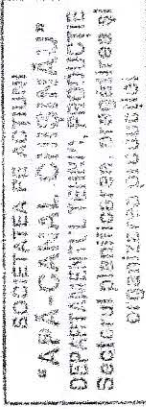 SOCIETATEA PE ACȚIUNI
"APĂ-CANAL CHIȘINĂU"
DEPARTAMENTUL TEHNIC, PROIECTE
Sectorul planificarea, pregătirea și
organizarea producției